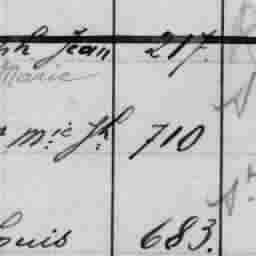 Jean 217.
Marie
Mic Jh 710
ouis 683.